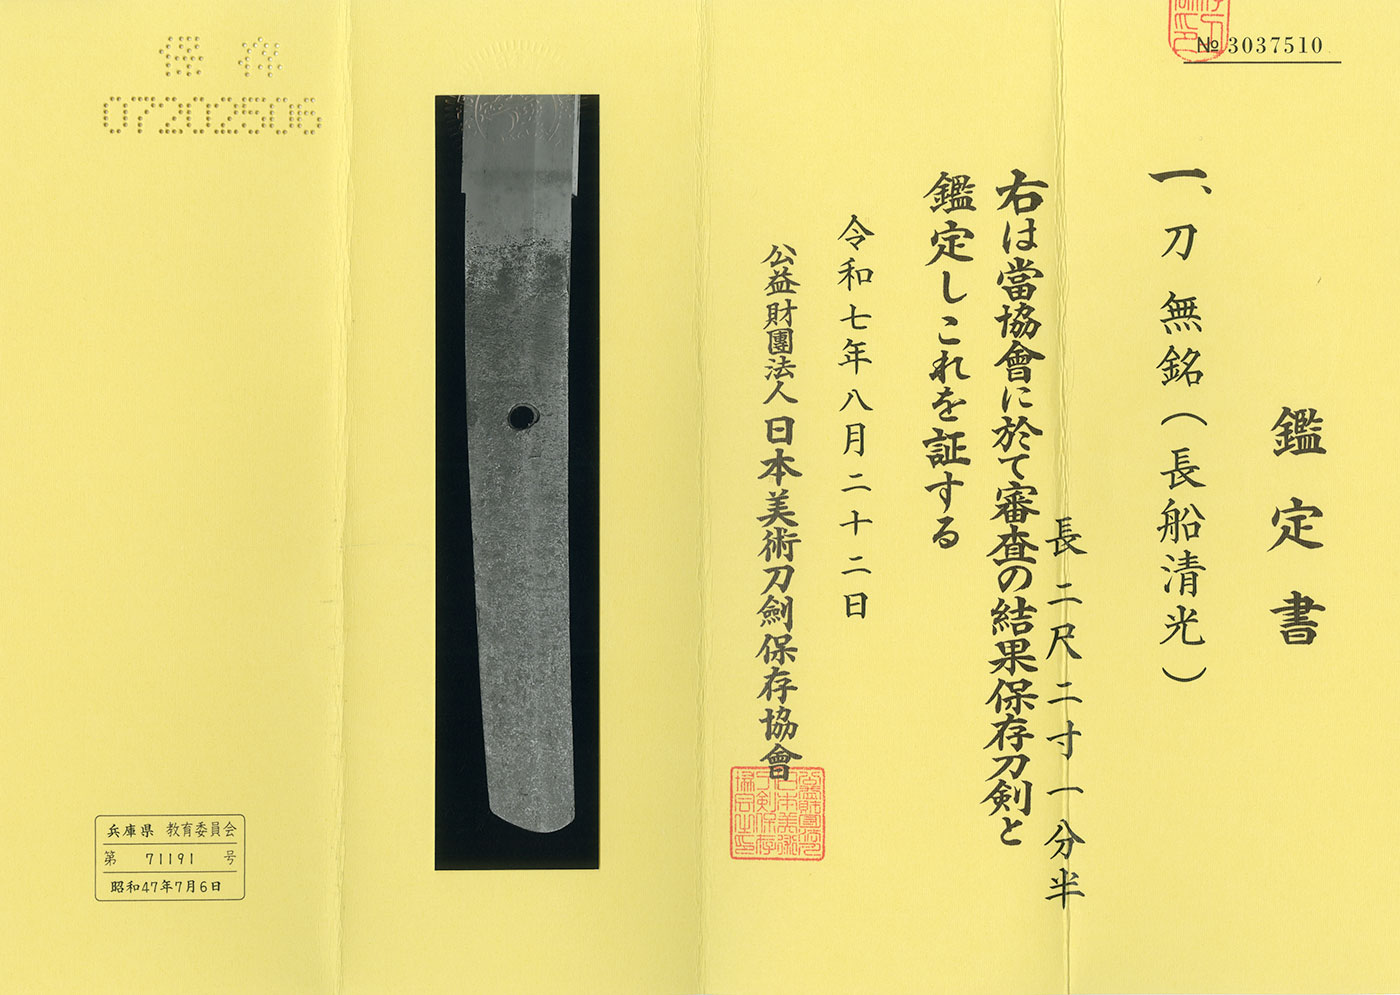 № 3037510
鑑定書
一、刀 無銘(長船清光)
長二尺二寸一分半
右は當協會に於て審査の結果保存刀剣と
鑑定しこれを証する
令和七年八月二十二日
公益財團法人 日本美術刀劍保存協會
保存
07202506
兵庫県 教育委員会
第 71191 号
昭和47年7月6日